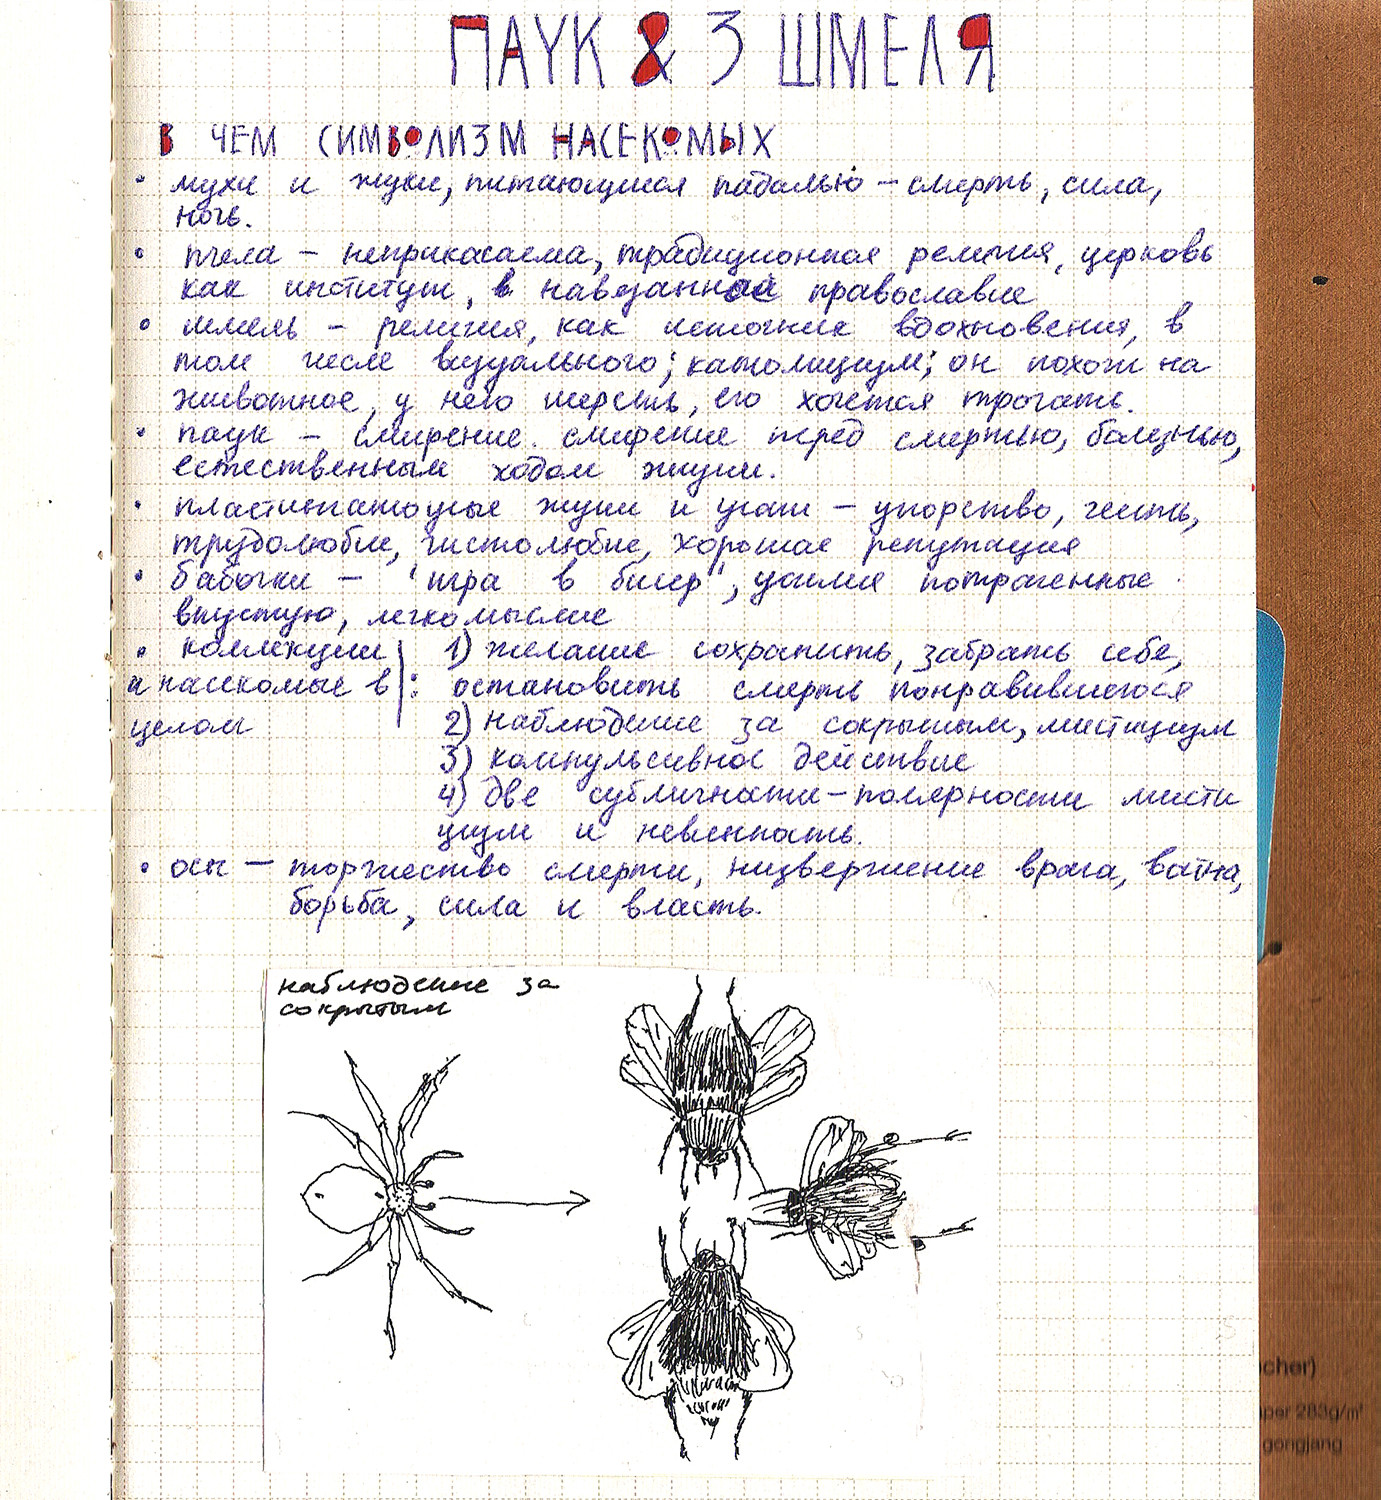 ПАУК & 3 ШМЕЛЯ
В ЧЕМ СИМВОЛИЗМ НАСЕКОМЫХ
• мухи и жуки, питающиеся падалью – смерть, сила,
ночь.
• пчела – неприкасаема, традиционная религия, церковь
как институт, в навязанное православие
• шмель – религия, как источник вдохновения, в
том числе визуального; католицизм; он похож на
животное, у него шерсть, его хочется трогать.
• паук – смирение. смирение перед смертью, болезнью,
естественным ходом жизни.
• пластинчатоусые жуки и усачи – упорство, честь,
трудолюбие, чистолюбие, хорошая репутация
• бабочки – "игра в бисер", усилия потраченные
впустую, легкомыслие
• коллекции
и насекомые в
целом
: 1) желание сохранить, забрать себе,
остановить смерть понравившегося
2) наблюдение за сокрытым, мистицизм
3) компульсивное действие
4) две субличности – полярности мисти
цизм и невинность.
• осы – торжество смерти, низвержение врага, война,
борьба, сила и власть.
наблюдение за
сокрытым
cher)
per 283g/m²
gongjang